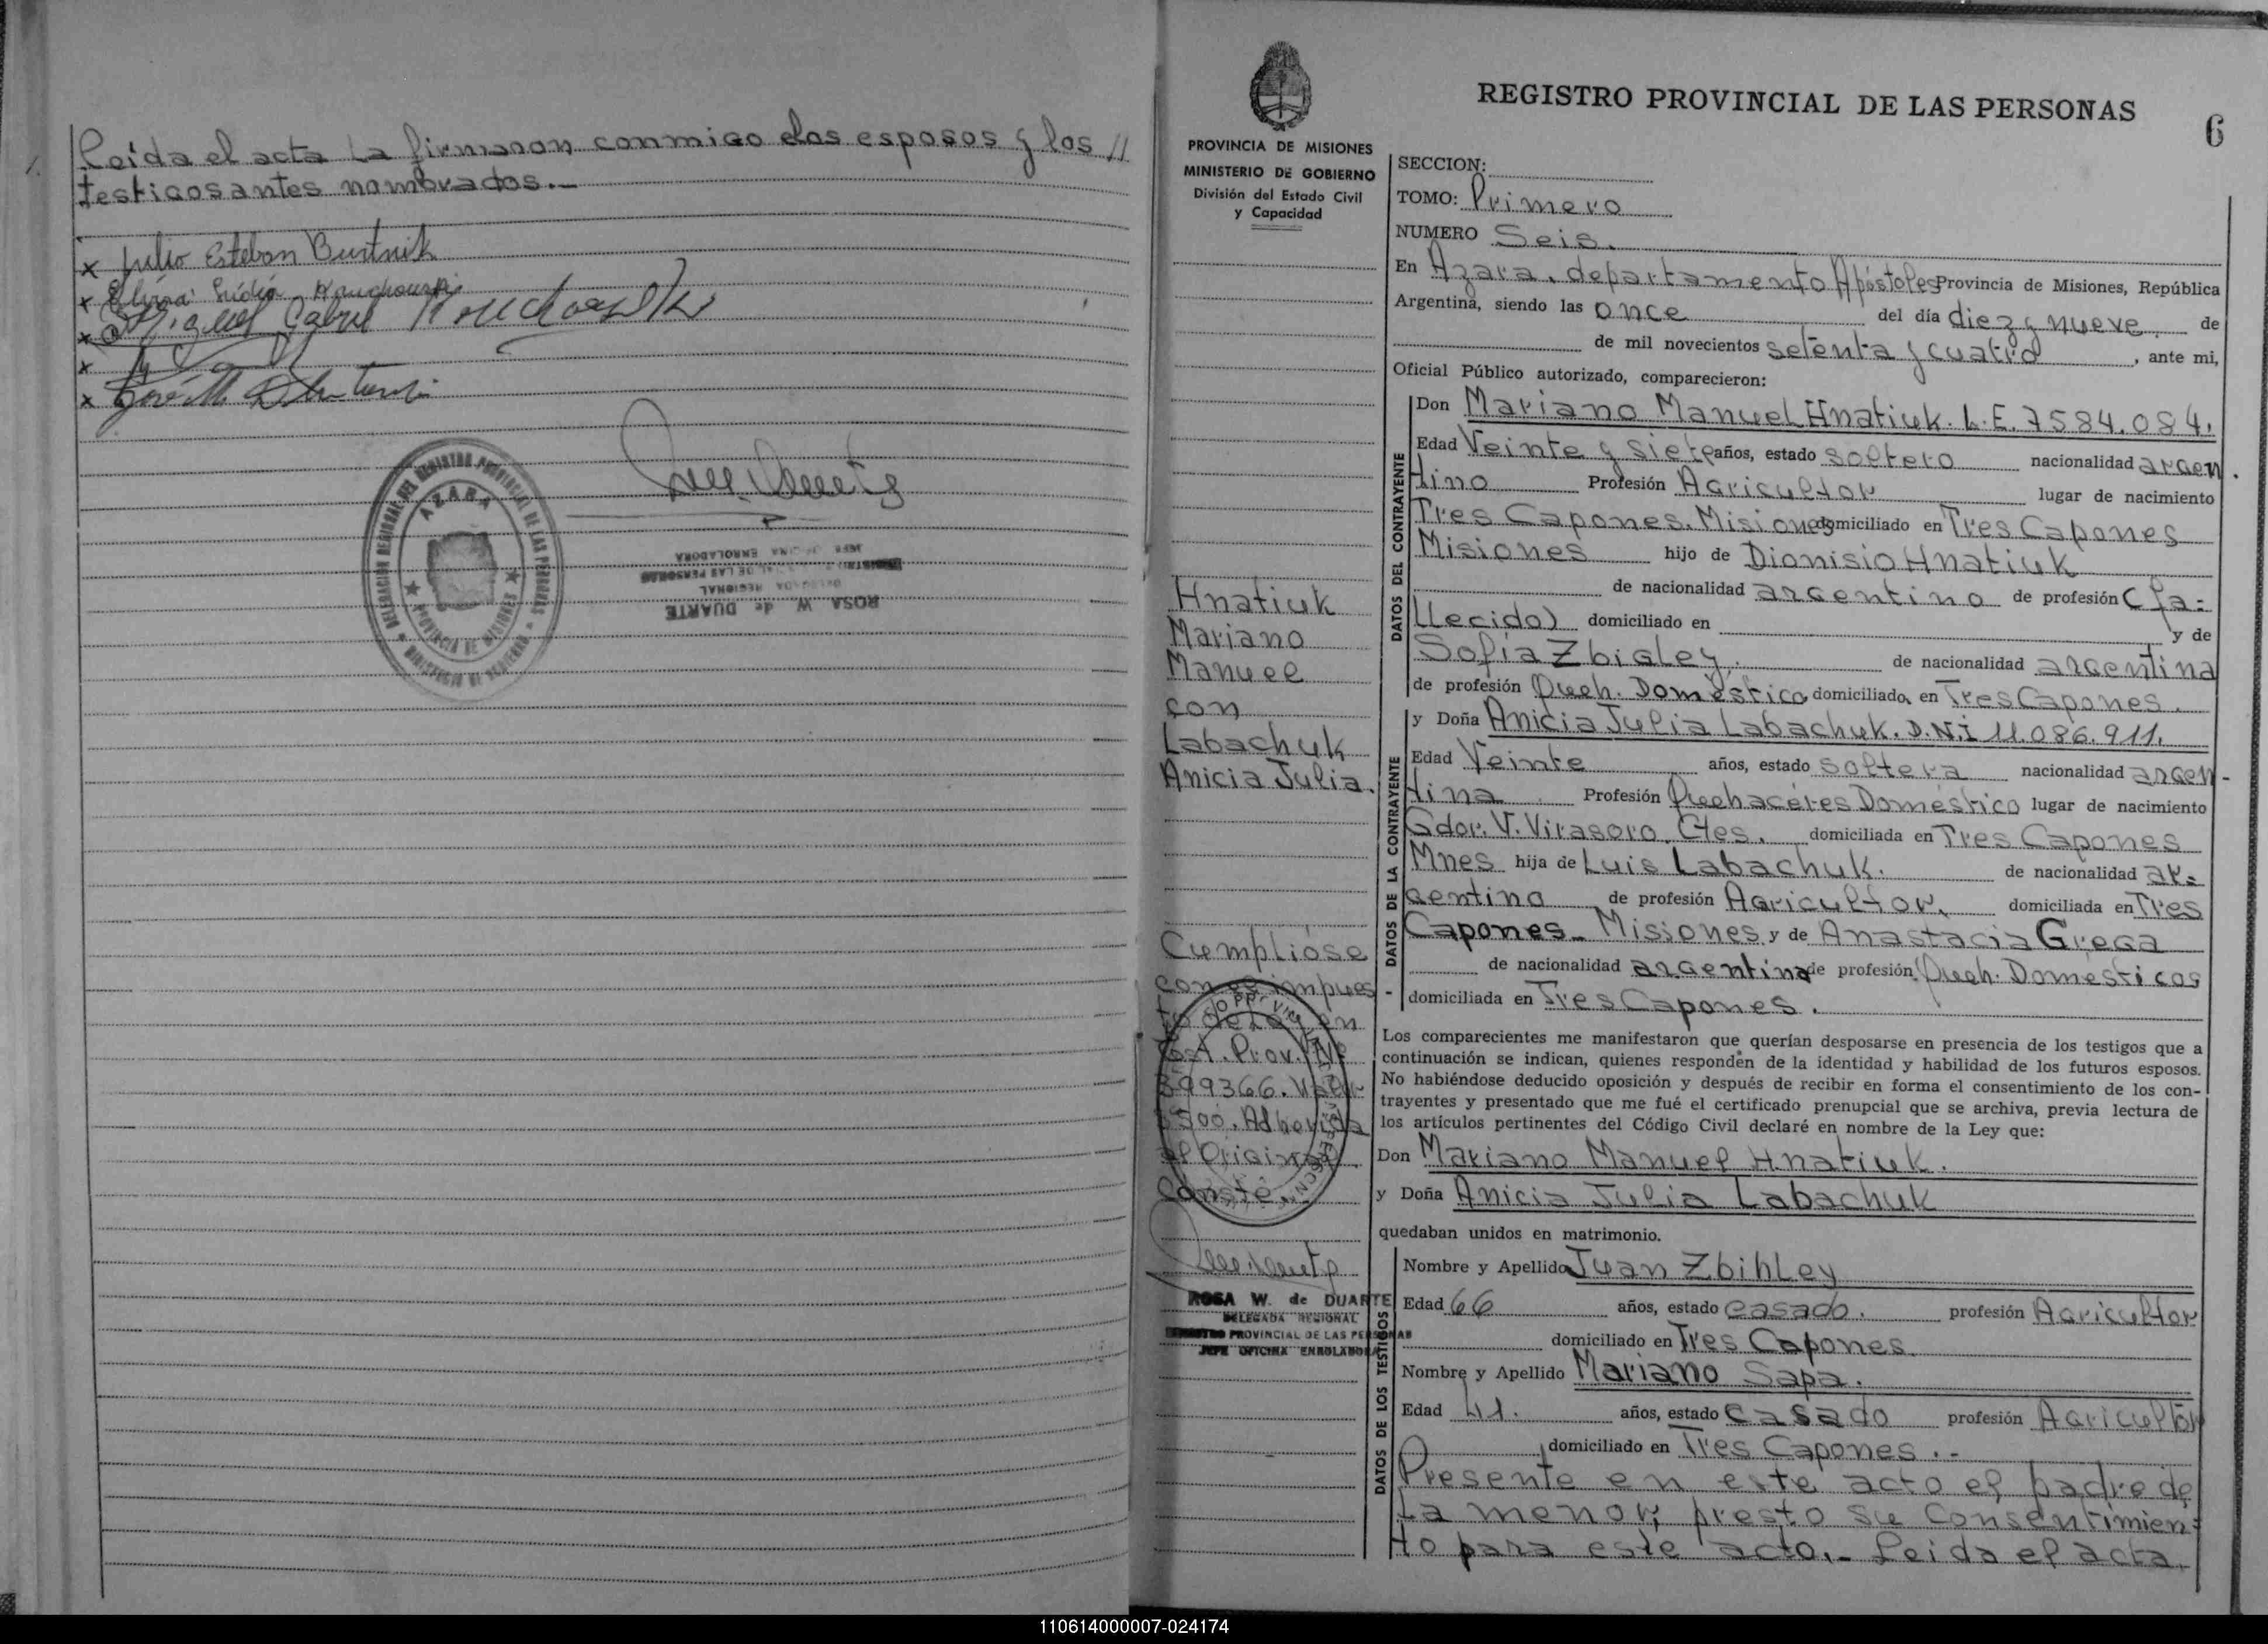 Leída el acta la firmaron conmigo los esposos y los //
testigos antes nombrados.-
x Julio Esteban Burtnik
x Elvira Lidia
x Miguel
x
x José M.
DELEGACION REGIONAL DEL REGISTRO PROVINCIAL DE LAS PERSONAS
AZARA
PROVINCIA DE MISIONES
MINISTERIO DE GOBIERNO
ROSA W. de DUARTE
DELEGADA REGIONAL
REGISTRO PROVINCIAL DE LAS PERSONAS
JEFE OFICINA ENROLADORA
REGISTRO PROVINCIAL DE LAS PERSONAS
6
PROVINCIA DE MISIONES
MINISTERIO DE GOBIERNO
División del Estado Civil
y Capacidad
Hnatiuk
Mariano
Manuel
con
Labachuk
Anicia Julia.
Cumplióse
con el impues-
to de Ley en
Est. Prov. Nº
399366. Valor
Adherida
al Original.
Conste.
ROSA W. de DUARTE
DELEGADA REGIONAL
REGISTRO PROVINCIAL DE LAS PERSONAS
JEFE OFICINA ENROLADORA
SECCION:
TOMO: Primero
NUMERO Seis.
En Azara, departamento Apóstoles Provincia de Misiones, República
Argentina, siendo las once del día diez y nueve de
de mil novecientos setenta y cuatro, ante mi,
Oficial Público autorizado, comparecieron:
DATOS DEL CONTRAYENTE
Don Mariano Manuel Hnatiuk. L.E. 7584.084.
Edad Veinte y siete años, estado soltero nacionalidad argen
tino Profesión Agricultor lugar de nacimiento
Tres Capones. Misiones domiciliado en Tres Capones
Misiones hijo de Dionisio Hnatiuk
de nacionalidad argentino de profesión (fa=
llecido) domiciliado en y de
Sofía Zbigley. de nacionalidad argentina
de profesión Queh. Doméstico domiciliado, en Tres Capones.
DATOS DE LA CONTRAYENTE
y Doña Anicia Julia Labachuk. D.N.I 11.086.911.
Edad Veinte años, estado soltera nacionalidad argen-
tina Profesión Quehaceres Doméstico lugar de nacimiento
Gdor. V. Virasoro, Ctes. domiciliada en Tres Capones
Mnes hija de Luis Labachuk. de nacionalidad ar=
gentino de profesión Agricultor, domiciliada en Tres
Capones- Misiones y de Anastacia Grega
de nacionalidad argentina de profesión Queh. Domésticos
domiciliada en Tres Capones.
Los comparecientes me manifestaron que querían desposarse en presencia de los testigos que a
continuación se indican, quienes responden de la identidad y habilidad de los futuros esposos.
No habiéndose deducido oposición y después de recibir en forma el consentimiento de los con-
trayentes y presentado que me fué el certificado prenupcial que se archiva, previa lectura de
los artículos pertinentes del Código Civil declaré en nombre de la Ley que:
Don Mariano Manuel Hnatiuk.
y Doña Anicia Julia Labachuk
quedaban unidos en matrimonio.
DATOS DE LOS TESTIGOS
Nombre y Apellido Juan Zbihley
Edad 66 años, estado casado. profesión Agricultor
domiciliado en Tres Capones
Nombre y Apellido Mariano Sapa.
Edad 41. años, estado casado profesión Agricultor
domiciliado en Tres Capones.-
Presente en este acto el padre de
la menor, presto su consentimien=
to para este acto.- Leida el acta
110614000007-024174